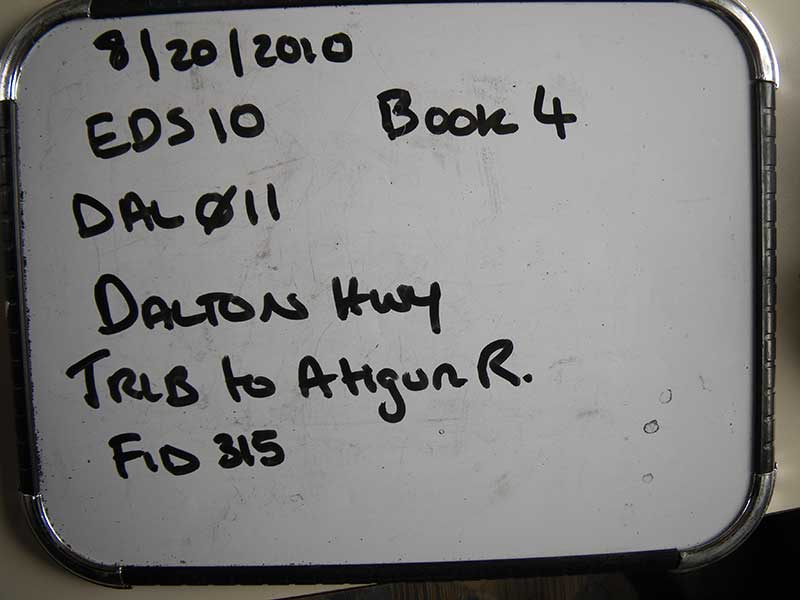 8/20/2010
EDS10 Book 4
DALØ11
DALTON HWY
TRIB to Atigun R.
FID 315